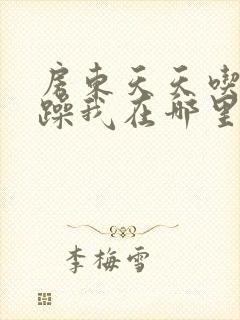 房东天天喫
躁我在哪里
李梅雪